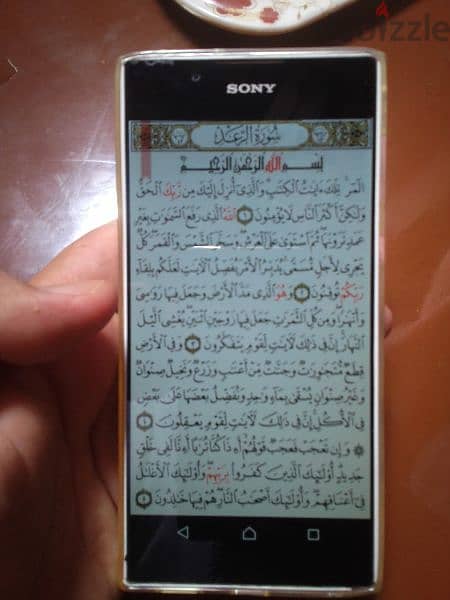 dubizzle
SONY
سورة الرعد
بسم الله الرحمن الرحيم
المر تلك ءايت الكتب والذى أنزل إليك من ربك الحق
ولكن أكثر الناس لا يؤمنون ١ الله الذى رفع السموت بغير
عمد ترونها ثم استوى على العرش وسخر الشمس والقمر كل
يجرى لأجل مسمى يدبر الأمر يفصل الأيت لعلكم بلقاء
ربكم توقنون ٢ وهو الذى مد الأرض وجعل فيها روسى
وأنهرا ومن كل الثمرت جعل فيها زوجين اثنين يغشى اليل
النهار إن فى ذلك لأيت لقوم يتفكرون ٣ وفى الأرض
قطع متجورت وجنت من أعنب وزرع ونخيل صنوان
وغير صنوان يسقى بماء وحد ونفضل بعضها على بعض
فى الأكل إن فى ذلك لأيت لقوم يعقلون ٤
وإن تعجب فعجب قولهم أءذا كنا تربا أءنا لفى خلق
جديد أولئك الذين كفروا بربهم وأولئك الأغلل
فى أعناقهم وأولئك أصحب النار هم فيها خلدون ٥